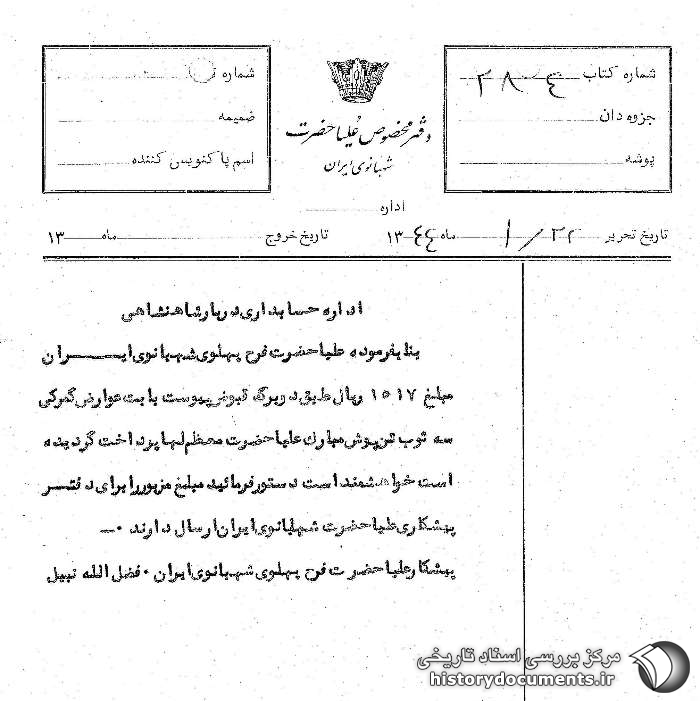 شماره کتاب ۲۸۰۴
جزوه دان
پوشه
دفتر مخصوص علیاحضرت
شهبانوی ایران
شماره
ضمیمه
اسم پاکنویس کننده
اداره
تاریخ تحریر ۲۲ / ۱ ماه ۱۳۴۴ تاریخ خروج ماه ۱۳
اداره حسابداری دربار شاهنشاهی
بنا بفرموده علیاحضرت فرح پهلوی شهبانوی ایـــران
مبلغ ۱۵۱۷ ریال طبق دو برگ قبوض پیوست بابت عوارض گمرکی
سه ثوب تن پوش مبارک علیاحضرت معظم لها پرداخت گردیده
است خواهشمند است دستور فرمائید مبلغ مزبور را برای دفتـر
پیشکاری علیاحضرت شهبانوی ایران ارسال دارند ۰ــ
پیشکار علیاحضرت فرح پهلوی شهبانوی ایران ۰ فضل الله نبیل
مرکز بررسی اسناد تاریخی
historydocuments.ir